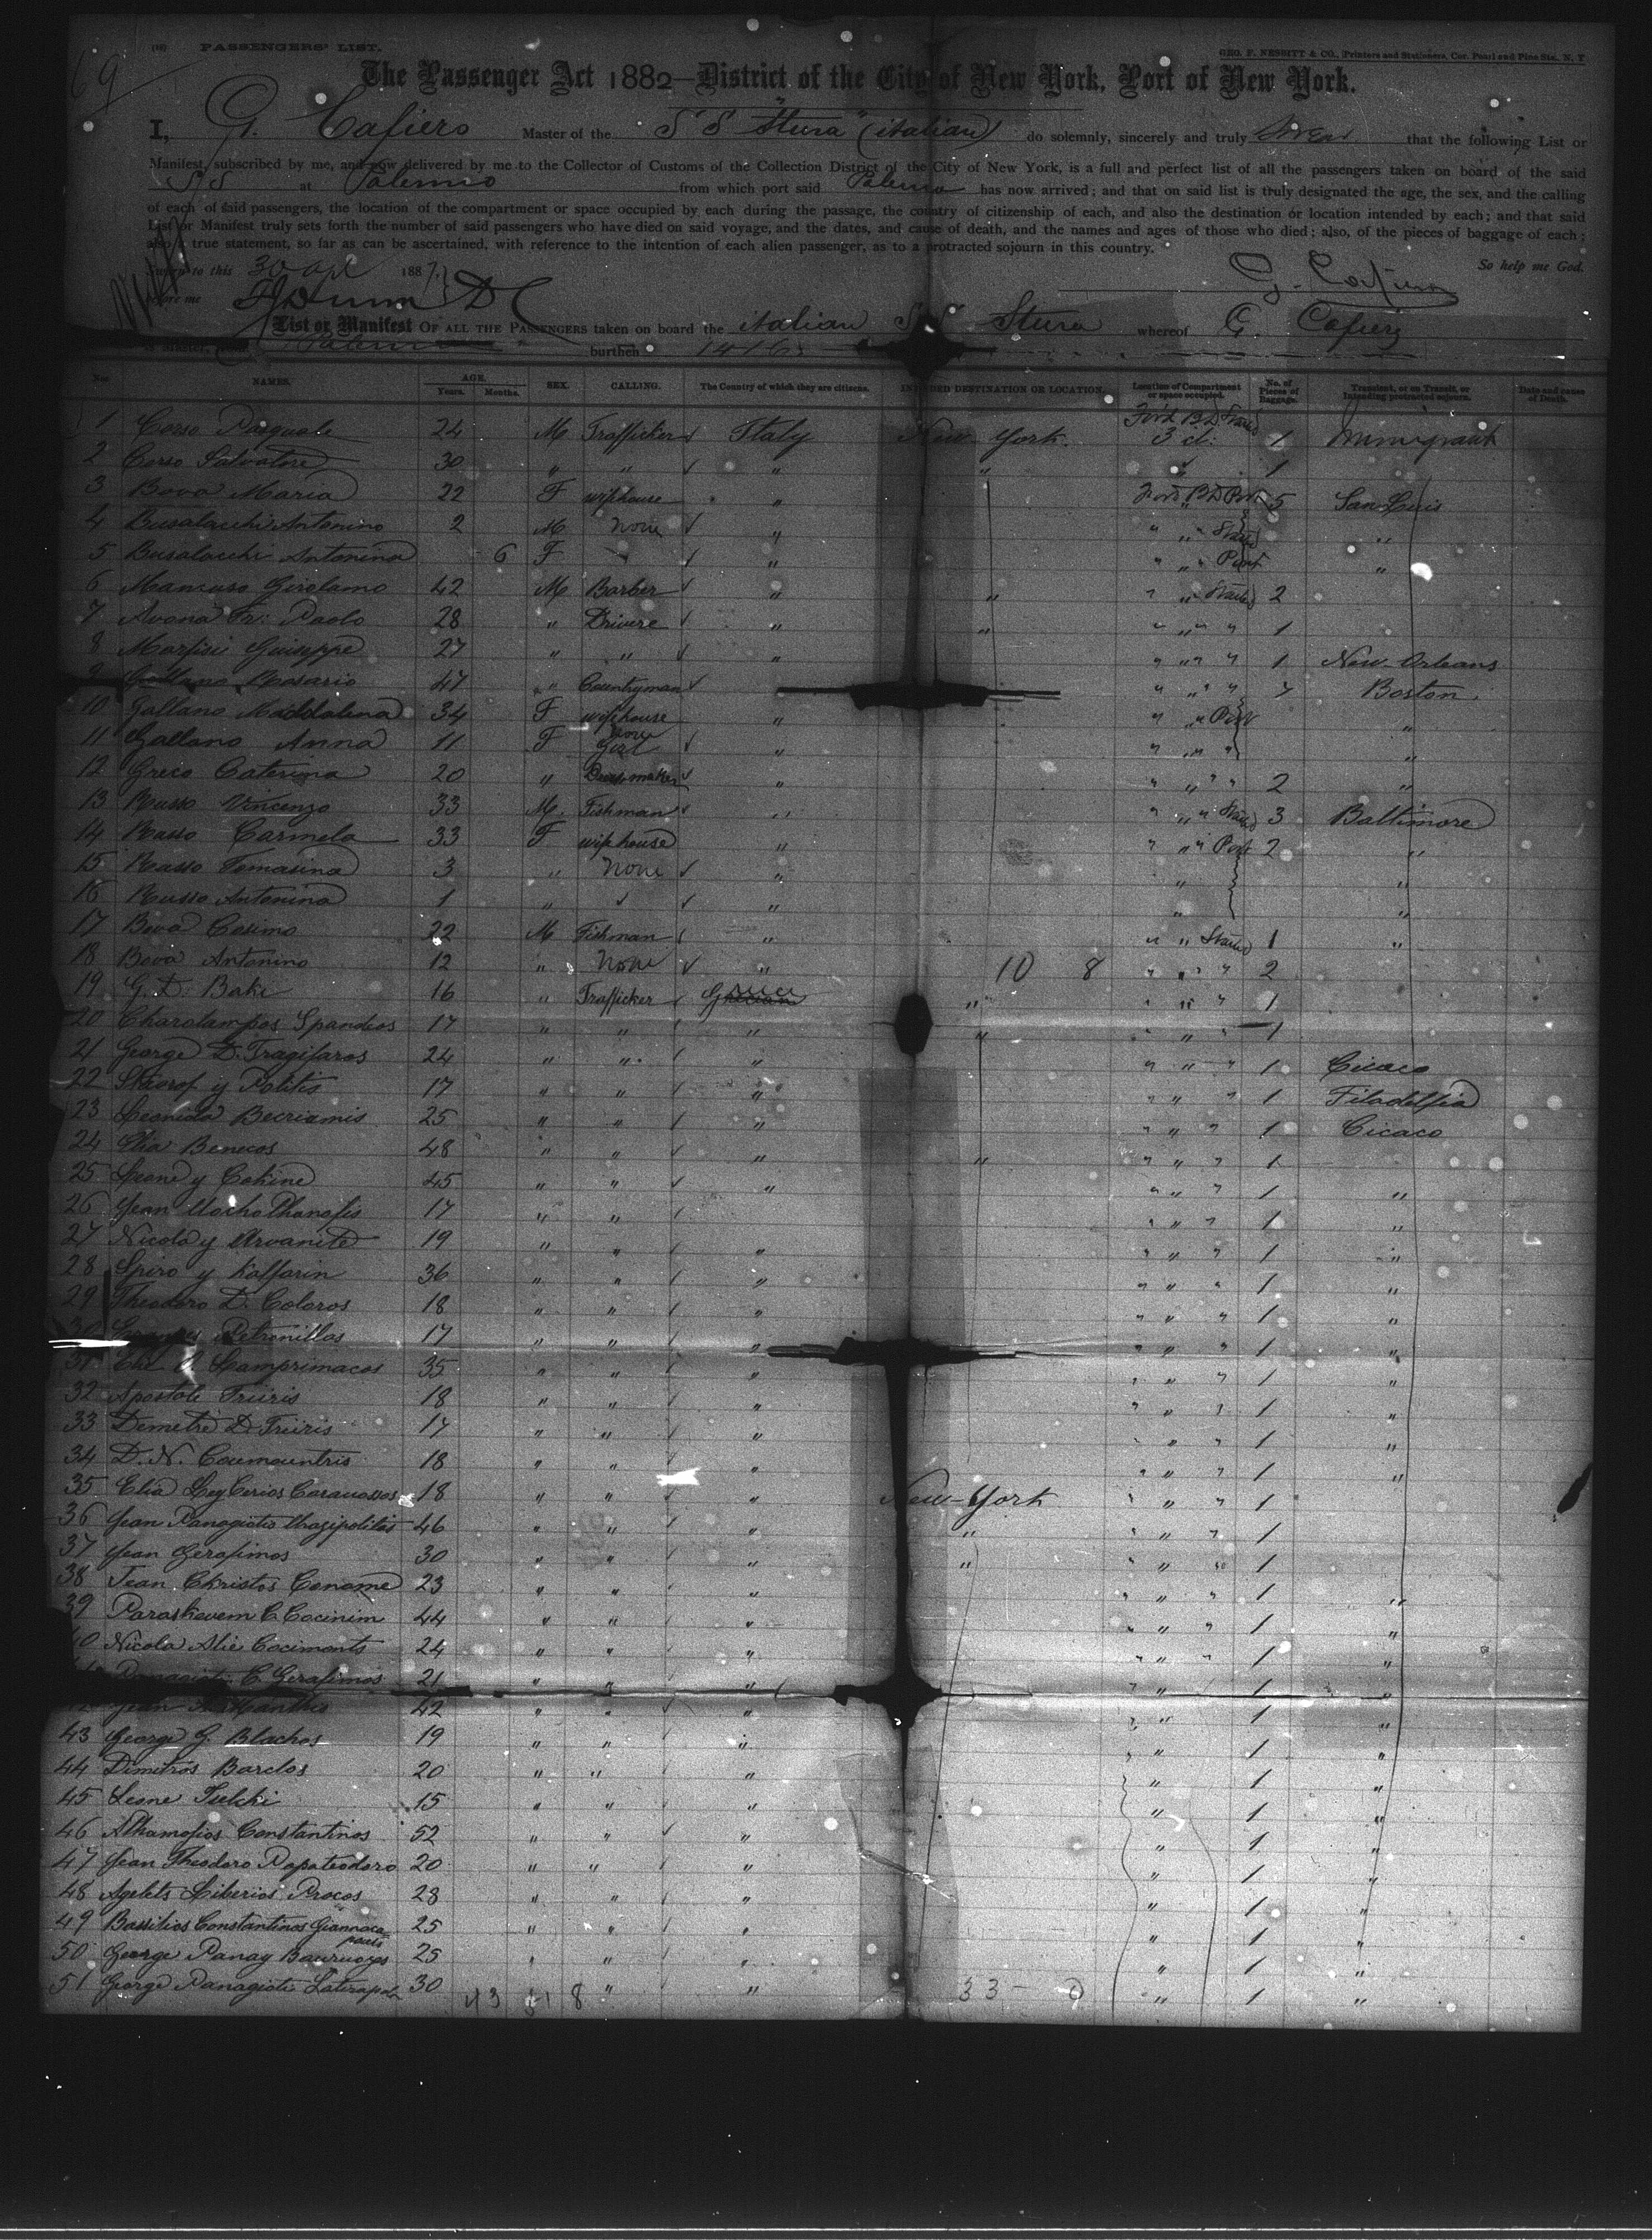 69
(16) PASSENGERS' LIST.
GEO. F. NESBITT & CO., Printers and Stationers, Cor. Pearl and Pine Sts., N. Y
The Passenger Act 1882—District of the City of New York, Port of New York.
I, G. Cafiero Master of the SS "Stura" (italian) do solemnly, sincerely and truly swear that the following List or
Manifest, subscribed by me, and now delivered by me to the Collector of Customs of the Collection District of the City of New York, is a full and perfect list of all the passengers taken on board of the said
SS at Palermo from which port said Palermo has now arrived; and that on said list is truly designated the age, the sex, and the calling
of each of said passengers, the location of the compartment or space occupied by each during the passage, the country of citizenship of each, and also the destination or location intended by each; and that said
List or Manifest truly sets forth the number of said passengers who have died on said voyage, and the dates, and cause of death, and the names and ages of those who died; also, of the pieces of baggage of each;
also a true statement, so far as can be ascertained, with reference to the intention of each alien passenger, as to a protracted sojourn in this country.
Sworn to this 30 Apl 1887. So help me God.
before me G. Cafiero
List or Manifest OF ALL THE PASSENGERS taken on board the italian SS Stura whereof G. Cafiero
is Master, from Palermo burthen 1416
No. NAMES. AGE. Years. Months. SEX. CALLING. The Country of which they are citizens. INTENDED DESTINATION OR LOCATION. Location of Compartment or space occupied. No. of Pieces of Baggage. Transient, or on Transit, or Intending protracted sojourn. Date and cause of Death.
1 Corso Pasquale 24 M Trafficker Italy New York. 3 cl: 1 Immigrant
2 Corso Salvatore 30 " " " " " 1
3 Bova Maria 22 F wifehouse " 5 San Louis
4 Busalacchi Antonino 2 M None " " " "
5 Busalacchi Antonina 6 F " " " Port "
6 Mancuso Girolamo 42 M Barber " " " " 2
7 Avona Fr: Paolo 28 " Drivere " " " " " 1
8 Morfisi Guiseppe 27 " " " " " " 1 New-Orleans
9 Gallano Rosario 47 " Countryman " " " 7 Boston
10 Gallano Maddalena 34 F wifehouse " " " Port "
11 Gallano Anna 11 F Girl " " " " "
12 Greco Caterina 20 " Dressmaker " " " " 2 "
13 Russo Vincenzo 33 M. Fishman " " " 3 Baltimore
14 Russo Carmela 33 F wifehouse " " " Port 2 "
15 Russo Tomasina 3 " None " " "
16 Russo Antonina 1 " " " "
17 Bova Cosimo 22 M Fishman " " " 1 "
18 Bova Antonino 12 " None " 10 8 " " " 2
19 G. D. Baki 16 " Trafficker Grece " " " " 1
20 Charalampos Spandeos 17 " " " " " " " 1
21 George D. Tragifaros 24 " " " " " " 1 Cicaco
22 y Politis 17 " " " " " 1 Filadelfia
23 Leonida Becriamis 25 " " " " " " 1 Cicaco
24 Elia Benecos 48 " " " " " " " 1
25 Leone y Cokine 45 " " " " " " 1 "
26 Jean 17 " " " " " 1 "
27 Nicola y Arvanite 19 " " " " " " 1 "
28 Spiro y Kaffarin 36 " " " " " " 1 "
29 Theodoro D. Coloros 18 " " " " " " 1 "
30 Petronillos 17 " " " " " " 1 "
31 Elie Lamprimacos 35 " " " " " " 1 "
32 Apostoli Triiris 18 " " " " " " 1 "
33 Demetre D. Triiris 17 " " " " " " 1 "
34 D. N. Coumountris 18 " " " " " " 1 "
35 Elia 18 " " " New-York " " " 1
36 Jean Panagiotio 46 " " " " " " " 1
37 Jean Gerasimos 30 " " " " " " " 1
38 Jean Christos Coname 23 " " " " " " 1 "
39 Paraskevem C. Cocinim 44 " " " " " " 1 "
40 Nicola Alie Cocimonts 24 " " " " " " 1 "
41 Panagioti C. Gerasimos 21 " " " " " 1 "
42 Jean 42 " " " " " 1 "
43 George G. Blachos 19 " " " " " 1 "
44 Dimitros Barclos 20 " " " " 1 "
45 Leone Tulchi 15 " " " " 1 "
46 Athamosios Constantinos 52 " " " " 1 "
47 Jean Theodoro Papateodoro 20 " " " " 1 "
48 Agelets Liberios Procos 28 " " " " 1 "
49 Bassilios Constantinos Giannacapoulis 25 " " " " 1 "
50 George Panay 25 " " " " 1 "
51 George Panagioti 30 " " " 1 "
43 51 8 33